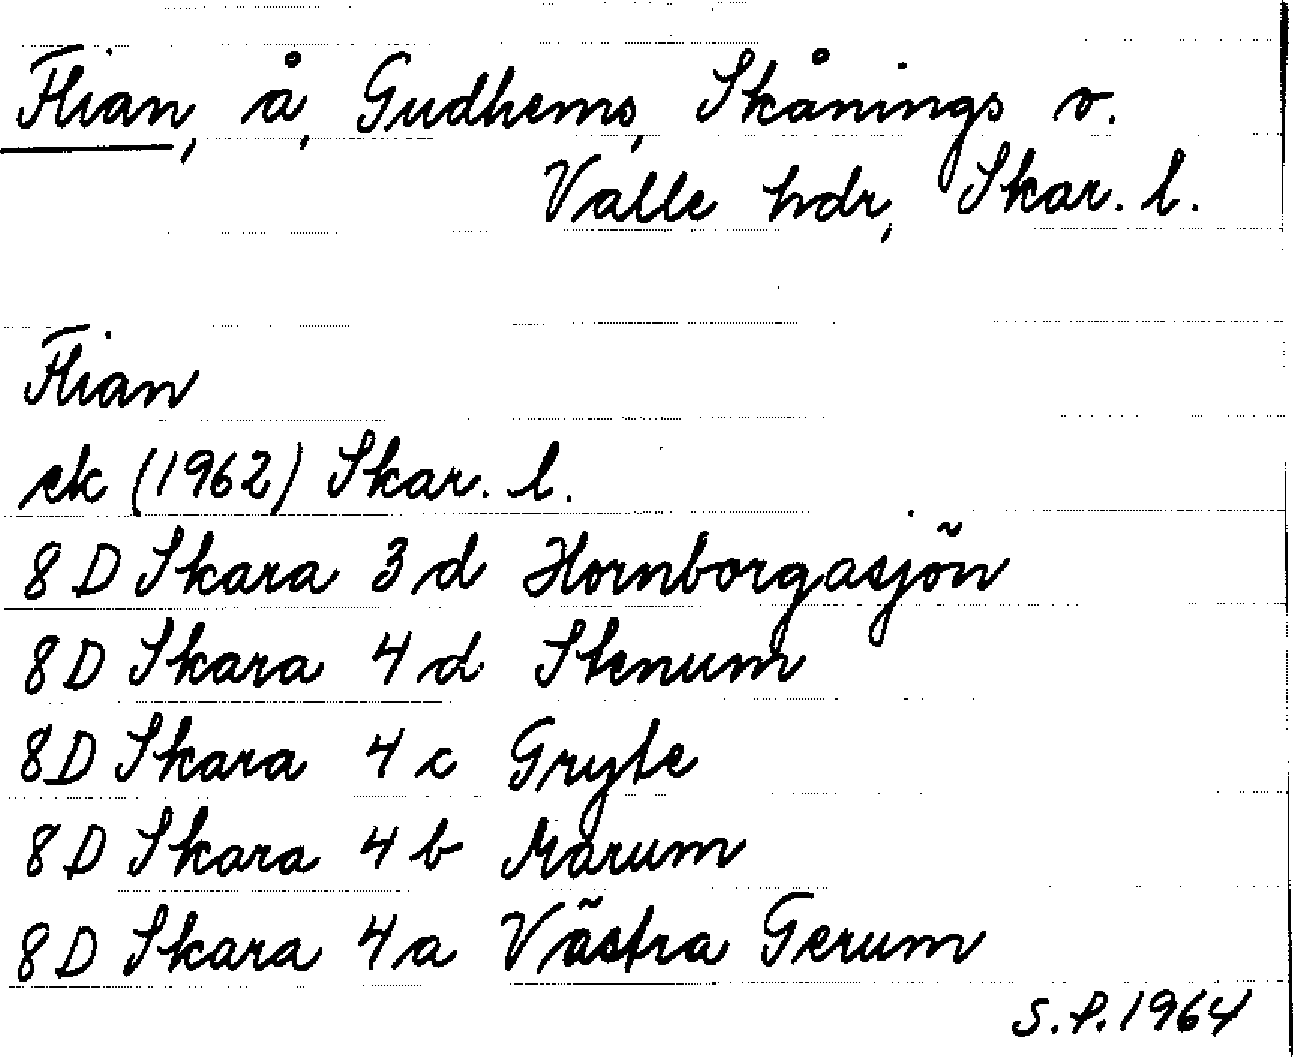 Flian, å, Gudhems, Skånings o.
Valle hdr, Skar. l.
Flian
ek (1962) Skar. l.
8 D Skara 3 d Hornborgasjön
8 D Skara 4 d Stenum
8 D Skara 4 c Gryte
8 D Skara 4 b Marum
8 D Skara 4 a Västra Gerum
S.P. 1964